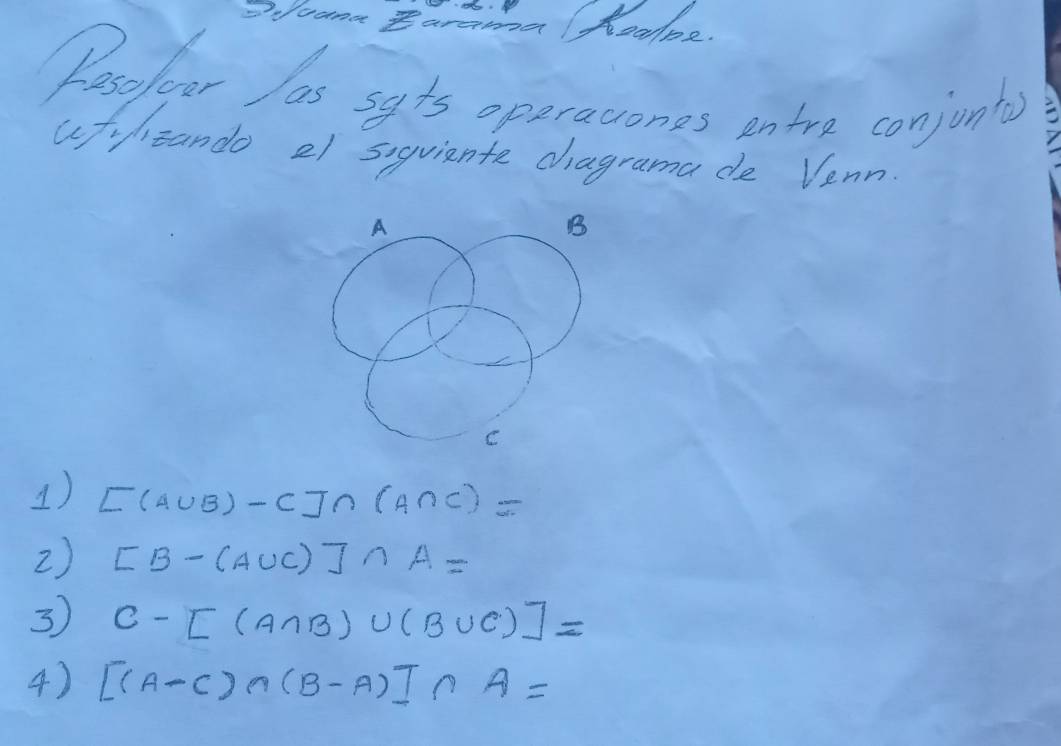 Zarama
Resolver las sgts operaciones entre conjuntos
utilizando el siguiente diagrama de Venn.
A B
C
1) [(A∪B)-C]∩(A∩C) =
2) [B-(A∪C)]∩A =
3) C-[(A∩B)∪(B∪C)] =
4) [(A-C)∩(B-A)]∩A =